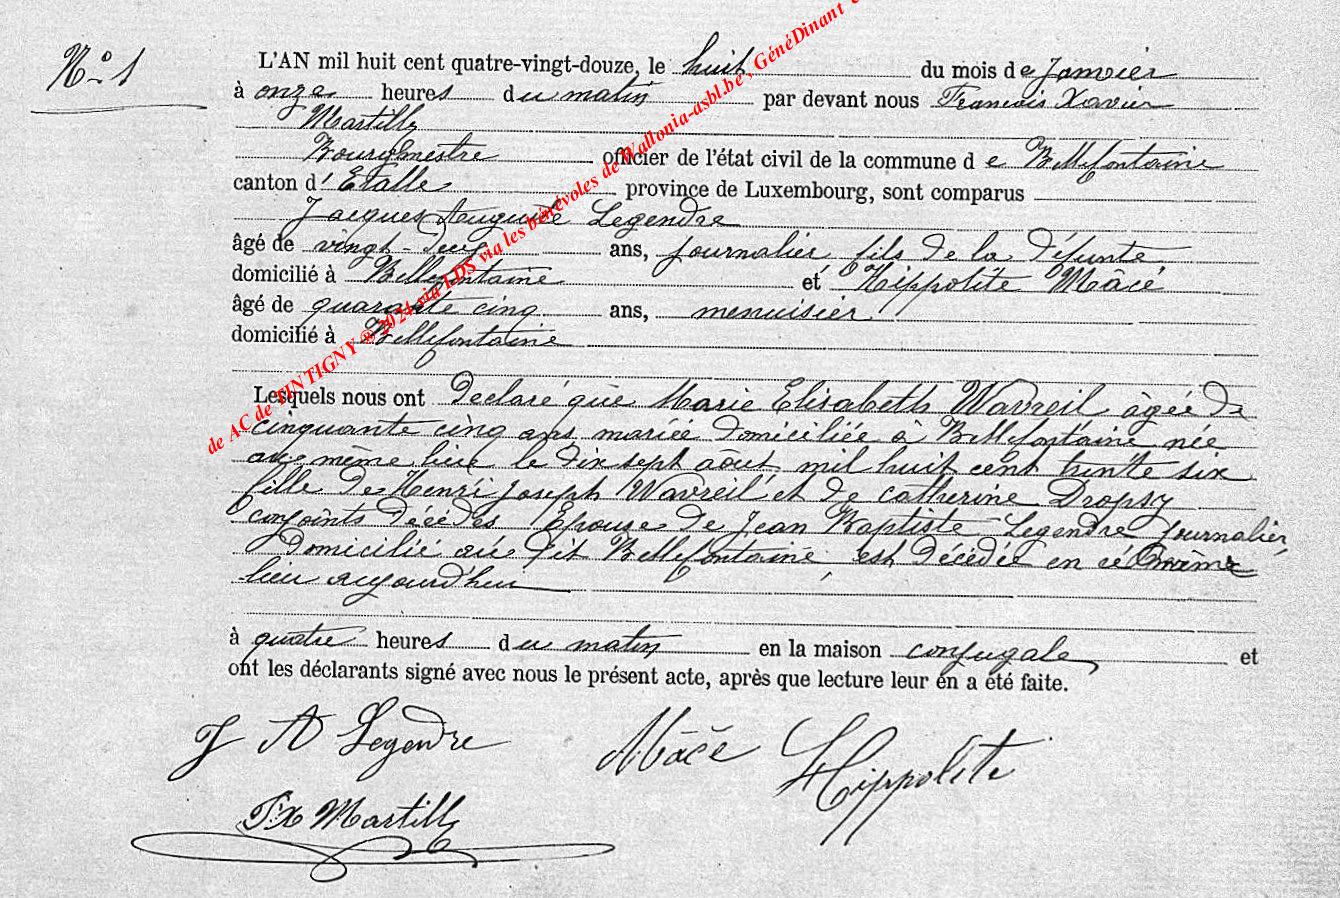 N° 1
L'AN mil huit cent quatre-vingt-douze, le huit du mois de Janvier
à onze heures du matin par devant nous Francois Xavier
Martilly
Bourgmestre officier de l'état civil de la commune de Bellefontaine
canton d'Etalle province de Luxembourg, sont comparus
Jacques Auguste Legendre
âgé de vingt-deux ans, journalier fils de la défunte
domicilié à Bellefontaine et Hippolite Mâcé
âgé de quarante cinq ans, menuisier
domicilié à Bellefontaine
Lesquels nous ont declaré que Marie Elisabeth Wavreil âgée de
cinquante cinq ans mariée domiciliée à Bellefontaine née
au même lieu le dix sept aôut mil huit cent trente six
fille de Henri Joseph Wavreil et de Catherine Dropsy
conjoints décédés Epouse de Jean Baptiste Legendre journalier,
domicilié au dit Bellefontaine, est décédée en ce même
lieu aujourd'hui
à quatre heures du matin en la maison conjugale, et
ont les déclarants signé avec nous le présent acte, après que lecture leur en a été faite.
J A Legendre Mâcé Hippolite
Fx Martilly
de AC de TINTIGNY ® 2024 via LDS via les bénévoles de Wallonia-asbl.be, GénéDinant